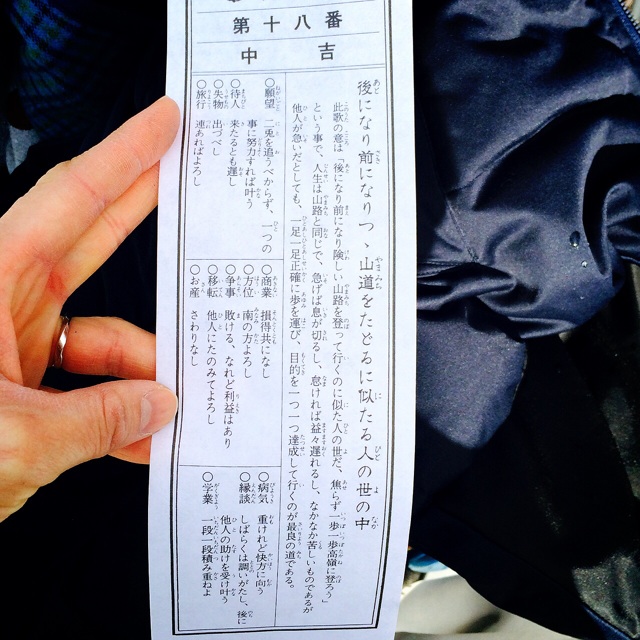 第十八番
中吉
後になり前になりつゝ山道をたどるに似たる人の世の中
此歌の意は「後になり前になり険しい山路を登って行くのに似た人の世だ、焦らず一歩一歩高嶺に登ろう」
という事で、人生は山路と同じで、急げば息が切るし、怠ければ益々遅れるし、なかなか苦しいものであるが
他人が急いだとしても、一足一足正確に歩を運び、目的を一つ一つ達成して行くのが最良の道である。
○願望 二兎を追うべからず、一つの
事に努力すれば叶う
○待人 来たるとも遅し
○失物 出づべし
○旅行 連あればよろし
○商業 損得共になし
○方位 南の方よろし
○争事 敗ける、なれど利益はあり
○移転 他人にたのみてよろし
○お産 さわりなし
○病気 重けれど快方に向う
○縁談 しばらくは調いがたし、後に
他人の助けを受け叶う
○学業 一段一段積み重ねよ